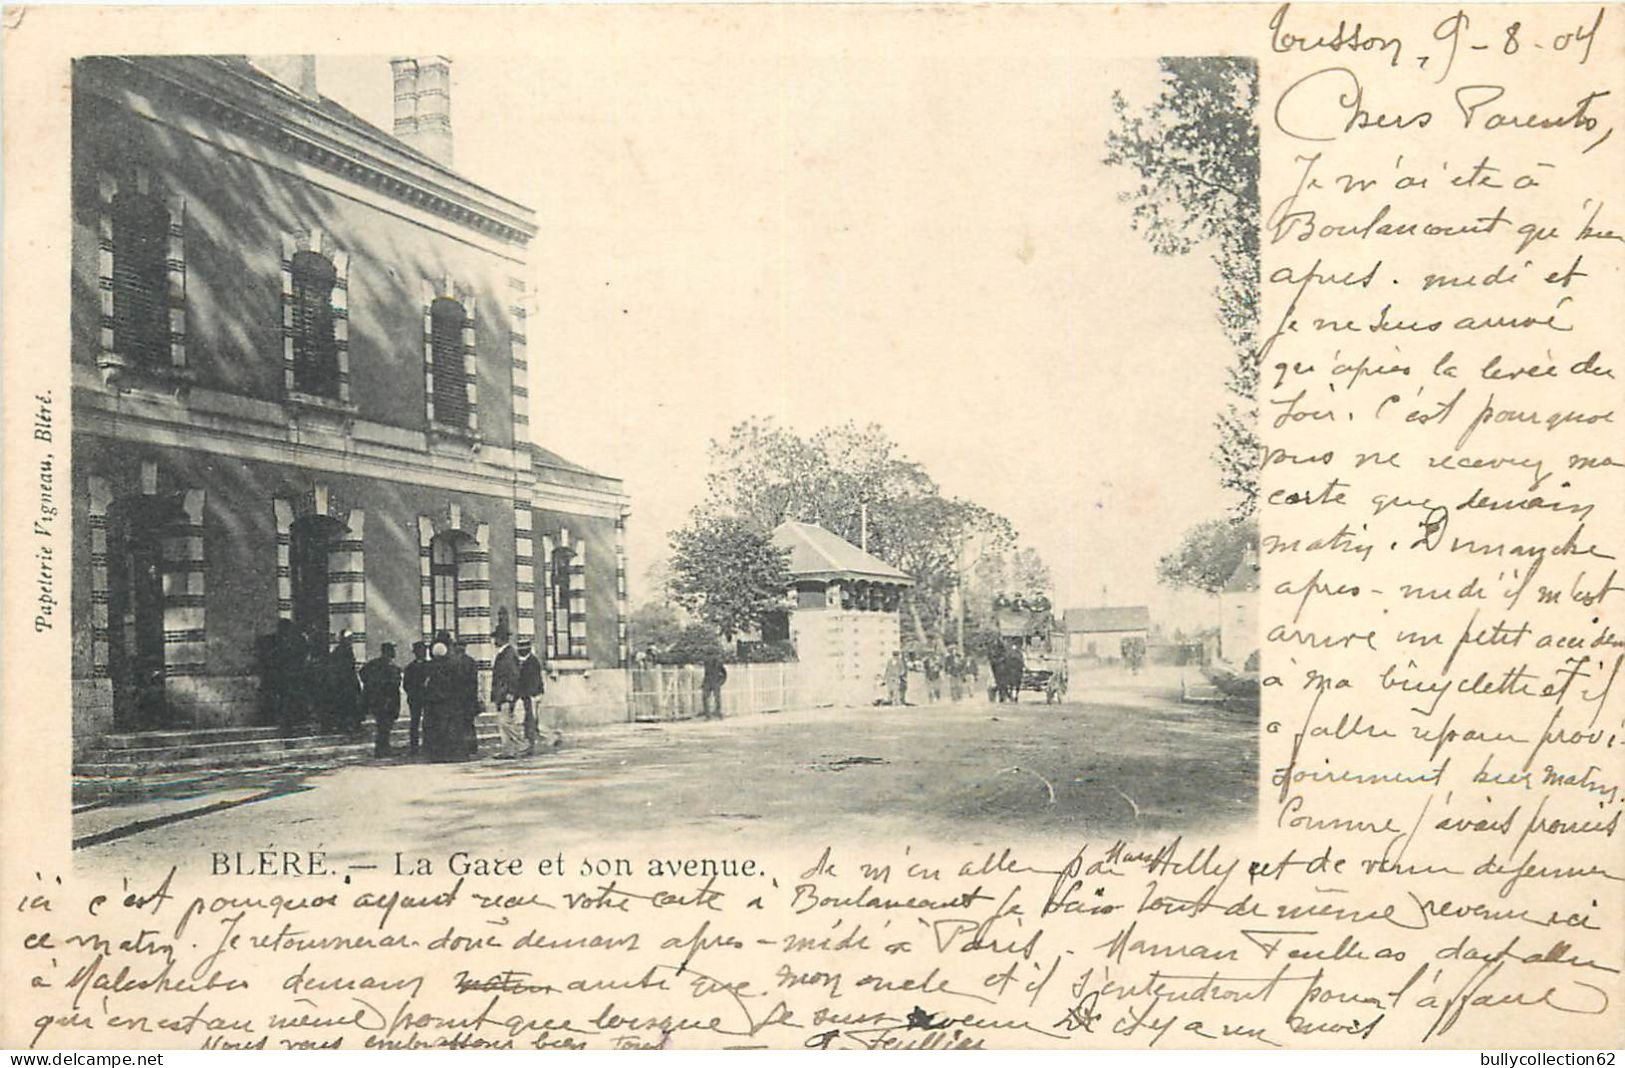 Tousson, 9-8-04
Chers Parents,
Je n'ai été à
Boulancourt qu'hier
après-midi et
je ne suis arrivé
qu'après la levée du
soir. C'est pourquoi
vous ne recevrez ma
carte que demain
matin. Dimanche
après-midi il m'est
arrivé un petit accident
à ma bicyclette et il
a fallu réparer provi-
soirement hier matin.
Comme j'avais promis
BLÉRÉ. — La Gare et son avenue.
de m'en aller par Milly et de venir déjeuner
ici c'est pourquoi ayant reçu votre carte à Boulancourt je suis tout de même revenu ici
ce matin. Je retournerai donc demain après-midi à Paris. Maman Feuillas doit aller
à Malesherbes demain ainsi que mon oncle et il s'entendront pour l'affaire
qui en est au même point que lorsque je suis venu il y a un mois
Nous vous embrassons bien tous
Papeterie Vigneau, Bléré.
bullycollection62